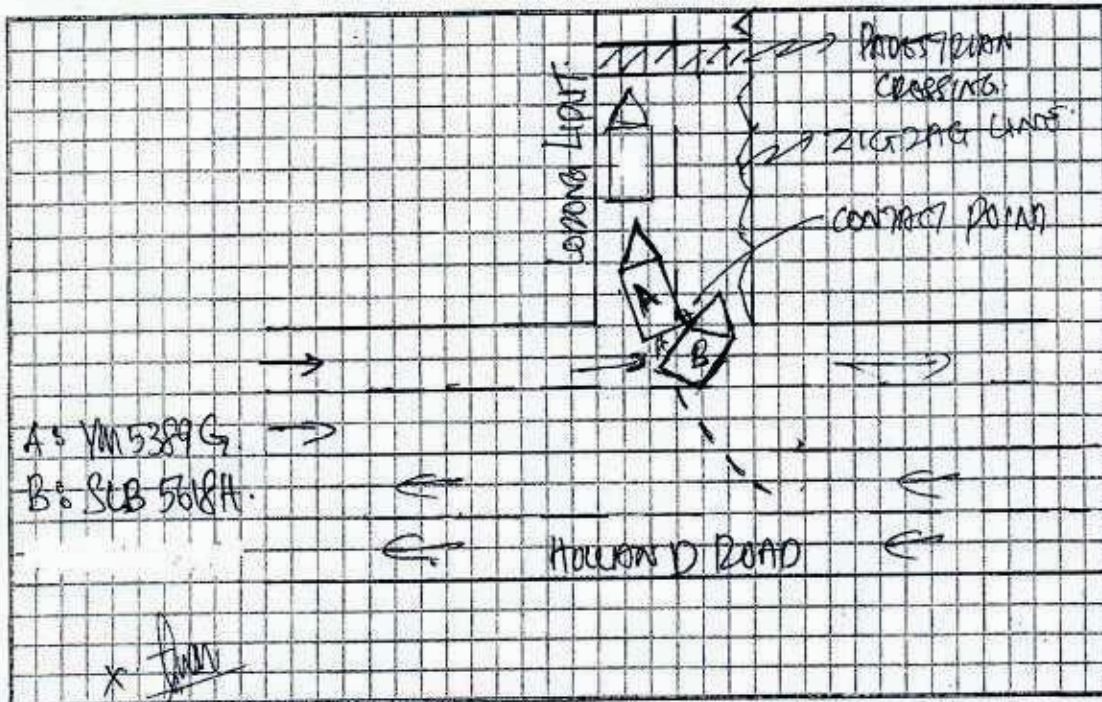 PADESTRIAN
CROSSING
ZIGZAG LINE
CONTACT POINT
LORONG LIPUT.
A
B
A: YM 5389 G
B: SLB 5618H.
HOLLAND ROAD
X